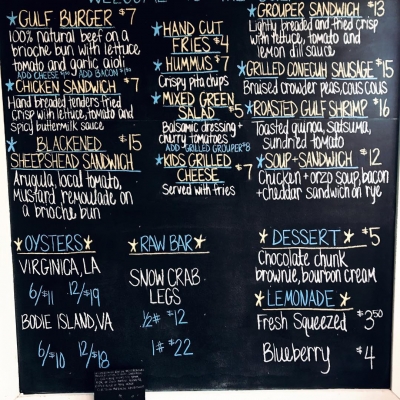 GULF BURGER $7
100% natural beef on a
brioche bun with lettuce,
tomato and garlic aioli
ADD CHEESE ADD BACON
CHICKEN SANDWICH $7
Hand breaded tenders fried
crisp with lettuce, tomato and
spicy buttermilk sauce
BLACKENED $15
SHEEPSHEAD SANDWICH
Arugula, local tomato,
mustard remoulade on
a brioche bun
HAND CUT
FRIES $4
HUMMUS $7
Crispy pita chips
MIXED GREEN
SALAD $5
Balsamic dressing +
cherry tomatoes
ADD GRILLED GROUPER $8
KIDS GRILLED
CHEESE $7
Served with fries
GROUPER SANDWICH $13
Lightly breaded and fried crisp
with lettuce, tomato and
lemon dill sauce
GRILLED CONECUH SAUSAGE $15
Braised crowder peas, cous cous
ROASTED GULF SHRIMP $16
Toasted quinoa, satsuma,
sundried tomato
SOUP + SANDWICH $12
Chicken + orzo soup, bacon
+ cheddar sandwich on rye
OYSTERS
VIRGINICA, LA
6/$11 12/$19
BODIE ISLAND, VA
6/$10 12/$18
RAW BAR
SNOW CRAB
LEGS
1/2# $12
1# $22
DESSERT $5
Chocolate chunk
brownie, bourbon cream
LEMONADE
Fresh Squeezed $3.50
Blueberry $4